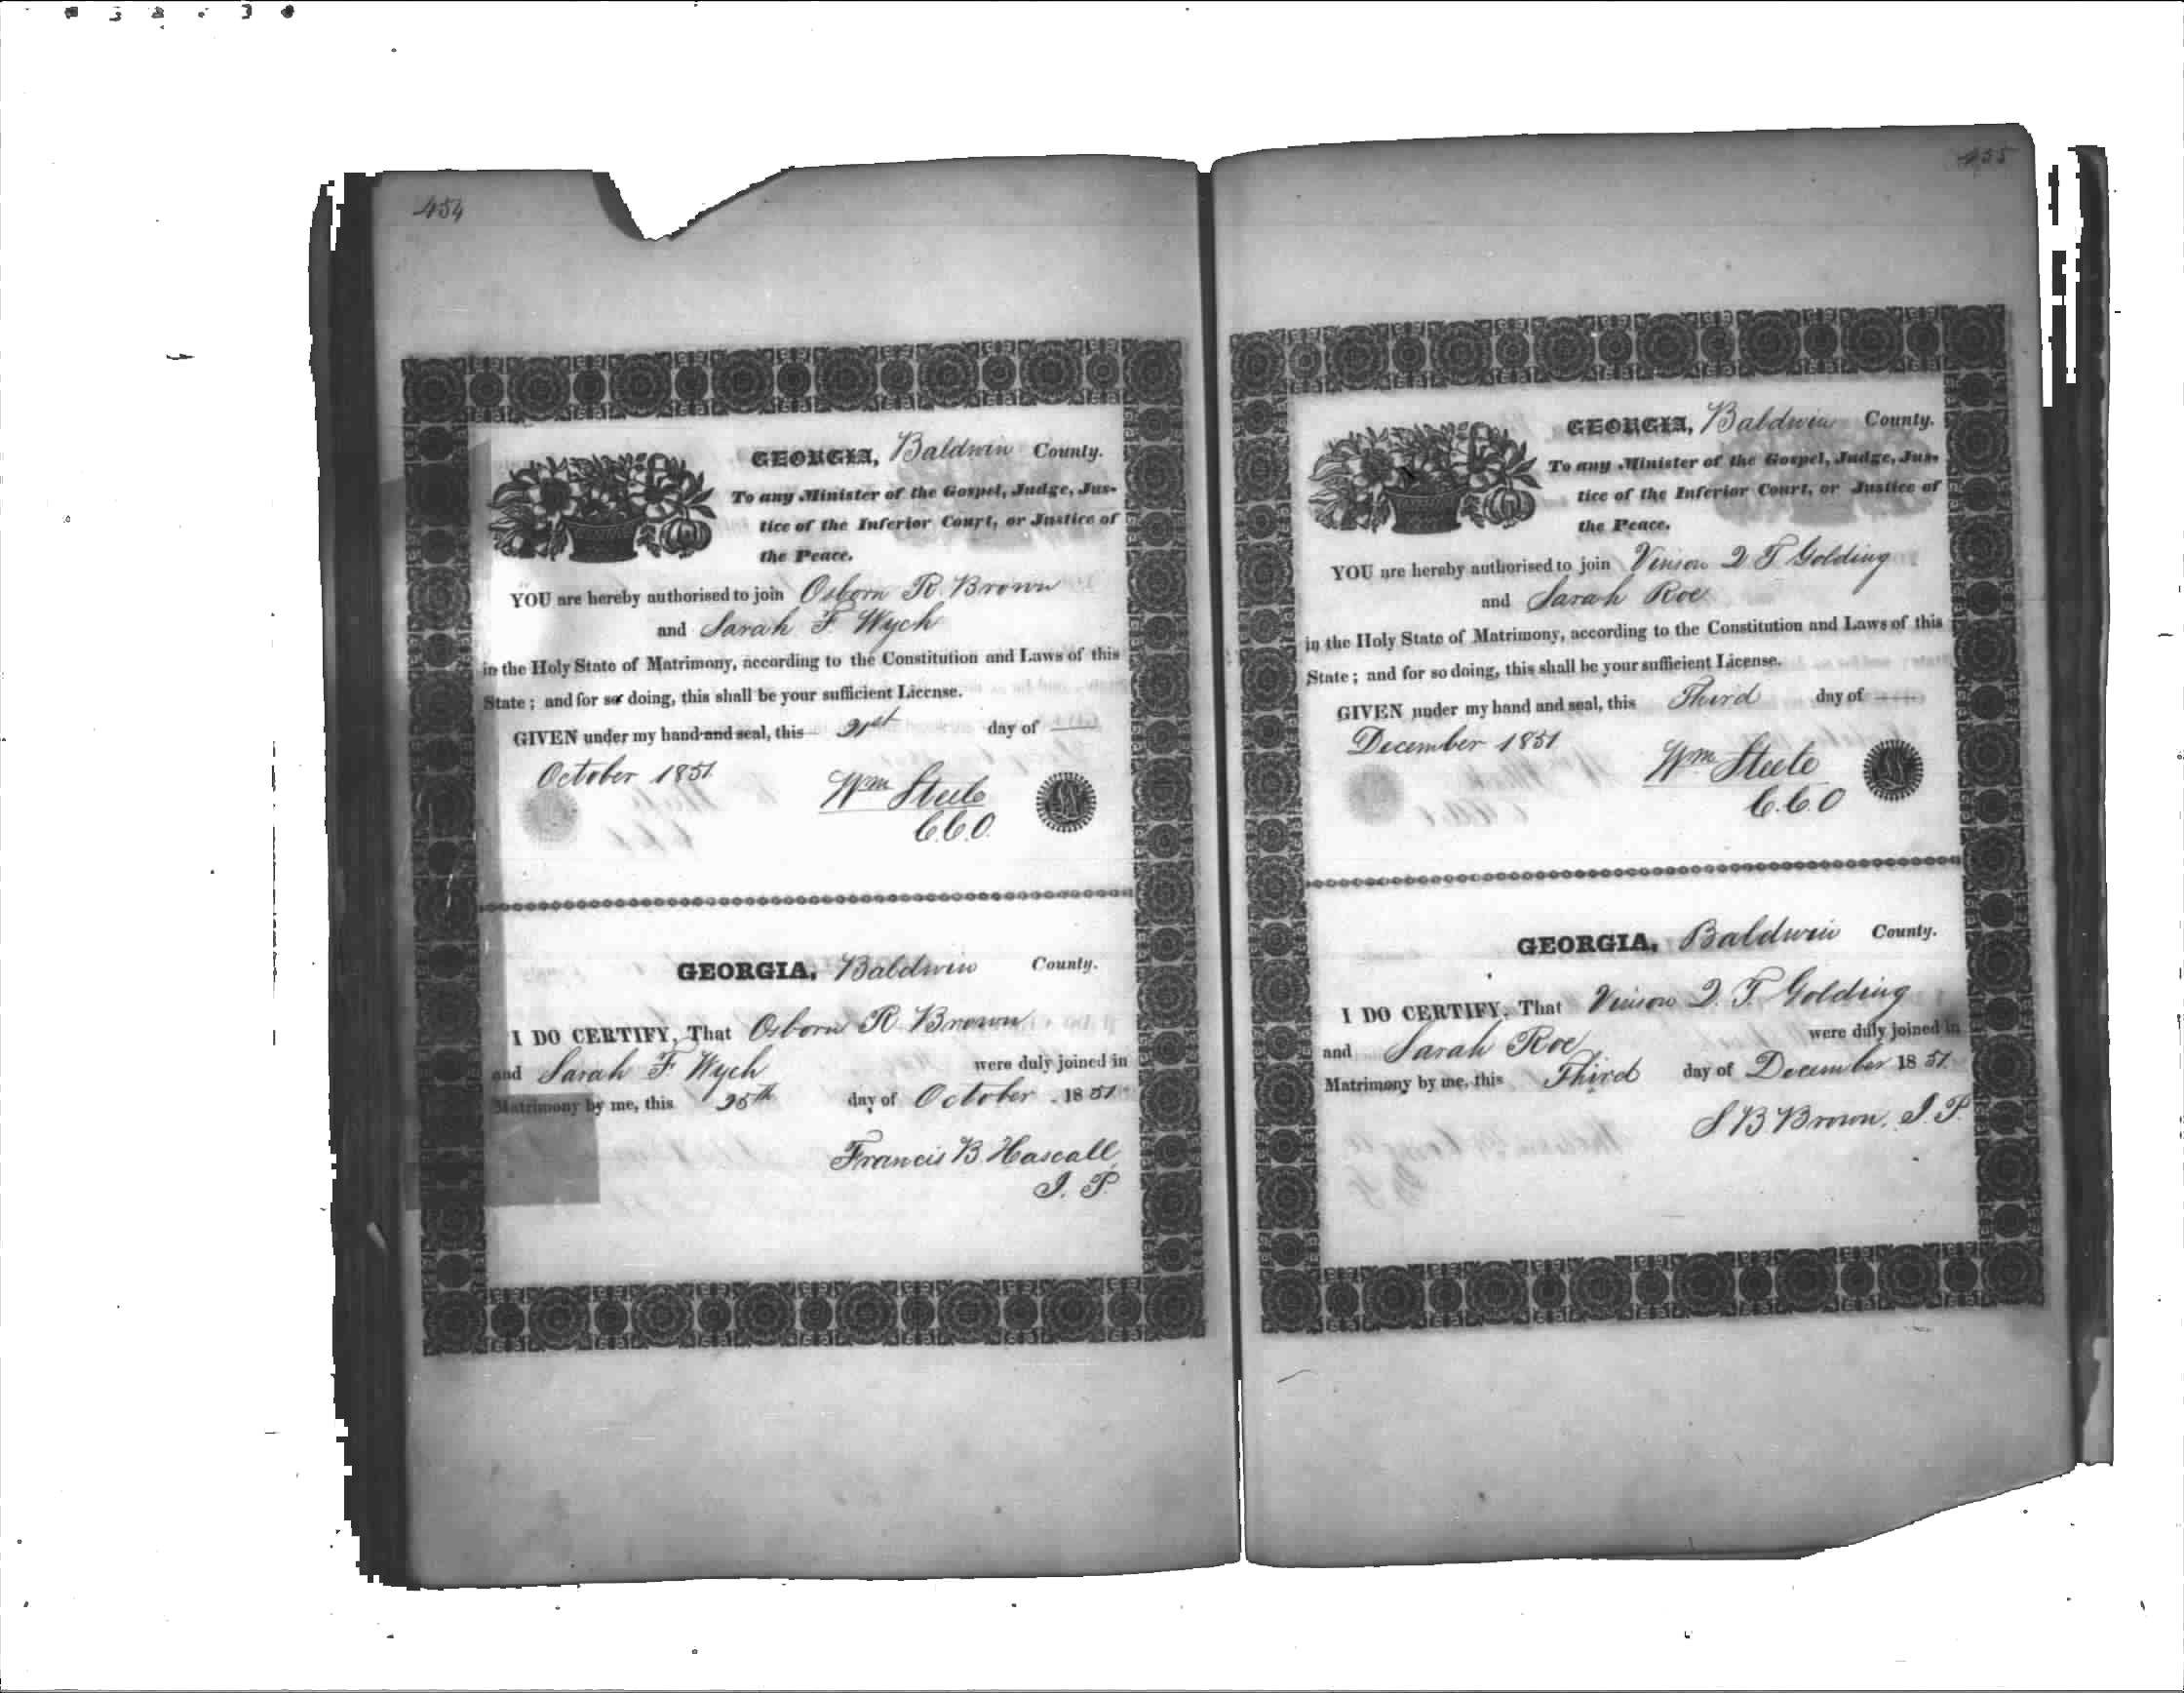 454
GEORGIA, Baldwin County.
To any Minister of the Gospel, Judge, Jus-
tice of the Inferior Court, or Justice of
the Peace.
YOU are hereby authorised to join Osborn R. Brown
and Sarah F. Wych
in the Holy State of Matrimony, according to the Constitution and Laws of this
State; and for so doing, this shall be your sufficient License.
GIVEN under my hand and seal, this 21st day of
October 1851
Wm Steele
C.C.O.
GEORGIA, Baldwin County.
I DO CERTIFY, That Osborn R. Brown
and Sarah F. Wych were duly joined in
Matrimony by me, this 25th day of October 1851
Francis B. Hascall
J. P.
455
GEORGIA, Baldwin County.
To any Minister of the Gospel, Judge, Jus-
tice of the Inferior Court, or Justice of
the Peace.
YOU are hereby authorised to join Vinson Q T Golding
and Sarah Roe
in the Holy State of Matrimony, according to the Constitution and Laws of this
State; and for so doing, this shall be your sufficient License.
GIVEN under my hand and seal, this Third day of
December 1851
Wm Steele
C.C.O
GEORGIA, Baldwin County.
I DO CERTIFY, That Vinson Q. T. Golding
and Sarah Roe were duly joined in
Matrimony by me, this Third day of December 1851.
S B Brown. J. P.